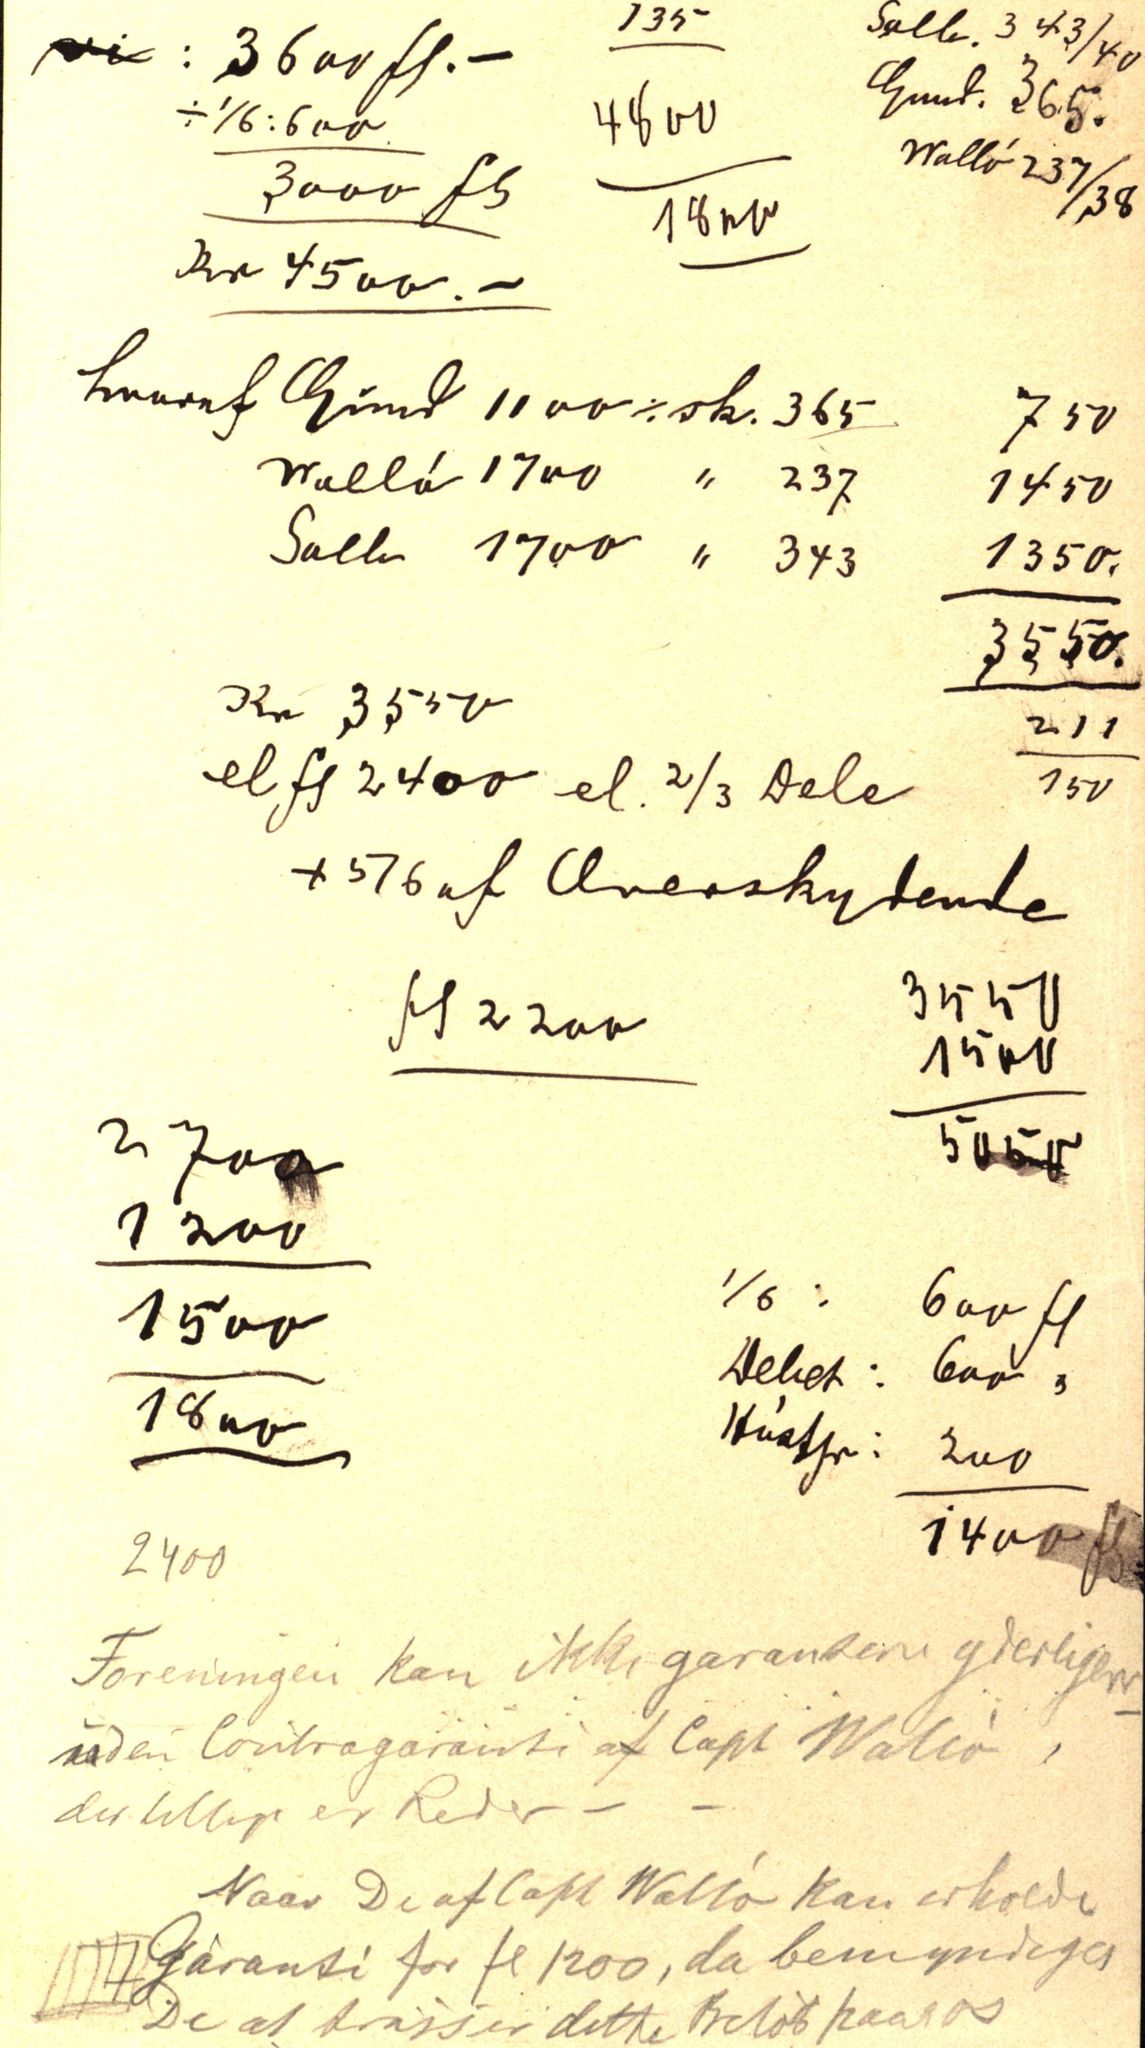 : 3600 fl. –
÷ 1/6 : 600
3000 fl
Kr 4500. –
135
4800
1800
Salh. 343/40
Gund. 365.
Wallö 237/38
hvoraf Gund 1100 ÷ sk. 365 750
Wallö 1700 " 237 1450
Salh 1700 " 343 1350.
3550.
Kr 3550
211
el fl 2400 el. 2/3 Dele
150
+ 5/6 af Overskydende
fl 2200
3550
1500
5050
2700
1200
1500
1800
1/6 : 600 fl
Debet : 600 "
: 200
1400 fl
2400
Foreningen kan ikke garantere yderligere
uden Contragaranti af Capt Wallö,
der tillige er Reder – –
Naar De af Capt Wallö kan erholde
Garanti for fl 1200, da bemyndiges
De at trassere dette Belöb paa os